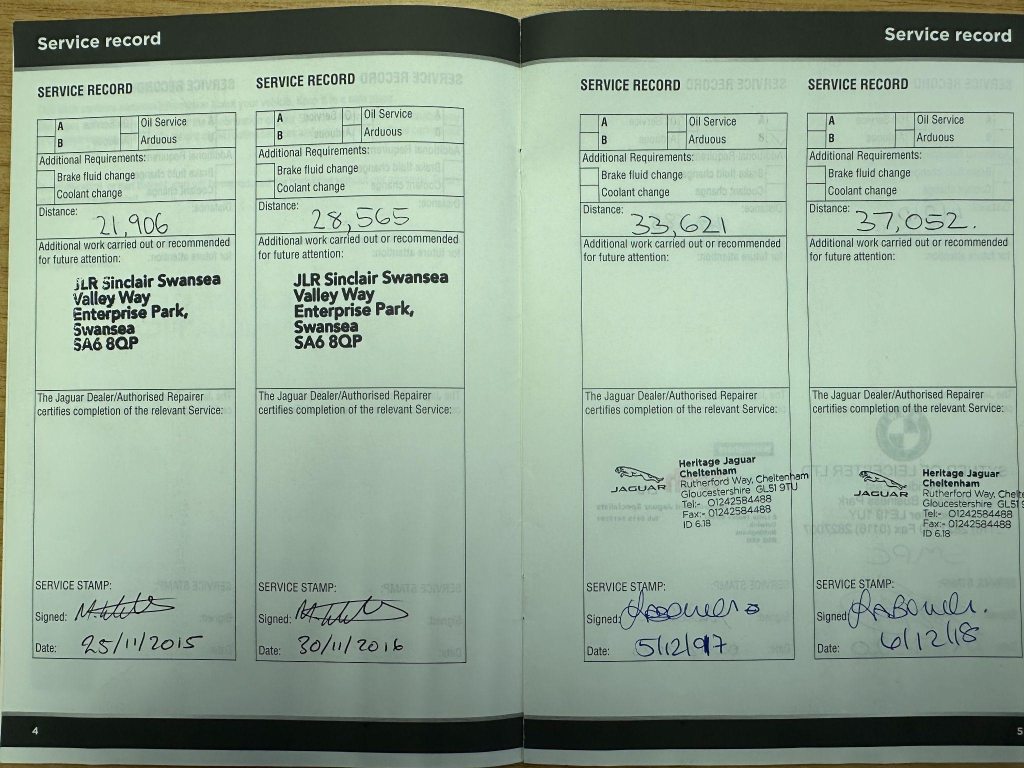 Service record
SERVICE RECORD
A Oil Service
B Arduous
Additional Requirements:
Brake fluid change
Coolant change
Distance: 21,906
Additional work carried out or recommended
for future attention:
JLR Sinclair Swansea
Valley Way
Enterprise Park,
Swansea
SA6 8QP
The Jaguar Dealer/Authorised Repairer
certifies completion of the relevant Service:
SERVICE STAMP:
Signed:
Date: 25/11/2015
SERVICE RECORD
A Oil Service
B Arduous
Additional Requirements:
Brake fluid change
Coolant change
Distance: 28,565
Additional work carried out or recommended
for future attention:
JLR Sinclair Swansea
Valley Way
Enterprise Park,
Swansea
SA6 8QP
The Jaguar Dealer/Authorised Repairer
certifies completion of the relevant Service:
SERVICE STAMP:
Signed:
Date: 30/11/2016
4
Service record
SERVICE RECORD
A Oil Service
B Arduous
Additional Requirements:
Brake fluid change
Coolant change
Distance: 33,621
Additional work carried out or recommended
for future attention:
The Jaguar Dealer/Authorised Repairer
certifies completion of the relevant Service:
JAGUAR
Heritage Jaguar
Cheltenham
Rutherford Way, Cheltenham
Gloucestershire GL51 9TU
Tel:- 01242584488
Fax:- 01242584488
ID 6.18
SERVICE STAMP:
Signed:
Date: 5/12/17
SERVICE RECORD
A Oil Service
B Arduous
Additional Requirements:
Brake fluid change
Coolant change
Distance: 37,052.
Additional work carried out or recommended
for future attention:
The Jaguar Dealer/Authorised Repairer
certifies completion of the relevant Service:
JAGUAR
Heritage Jaguar
Cheltenham
Rutherford Way, Chelte
Gloucestershire GL51 9
Tel:- 01242584488
Fax:- 01242584488
ID 6.18
SERVICE STAMP:
Signed:
Date: 6/12/18
5